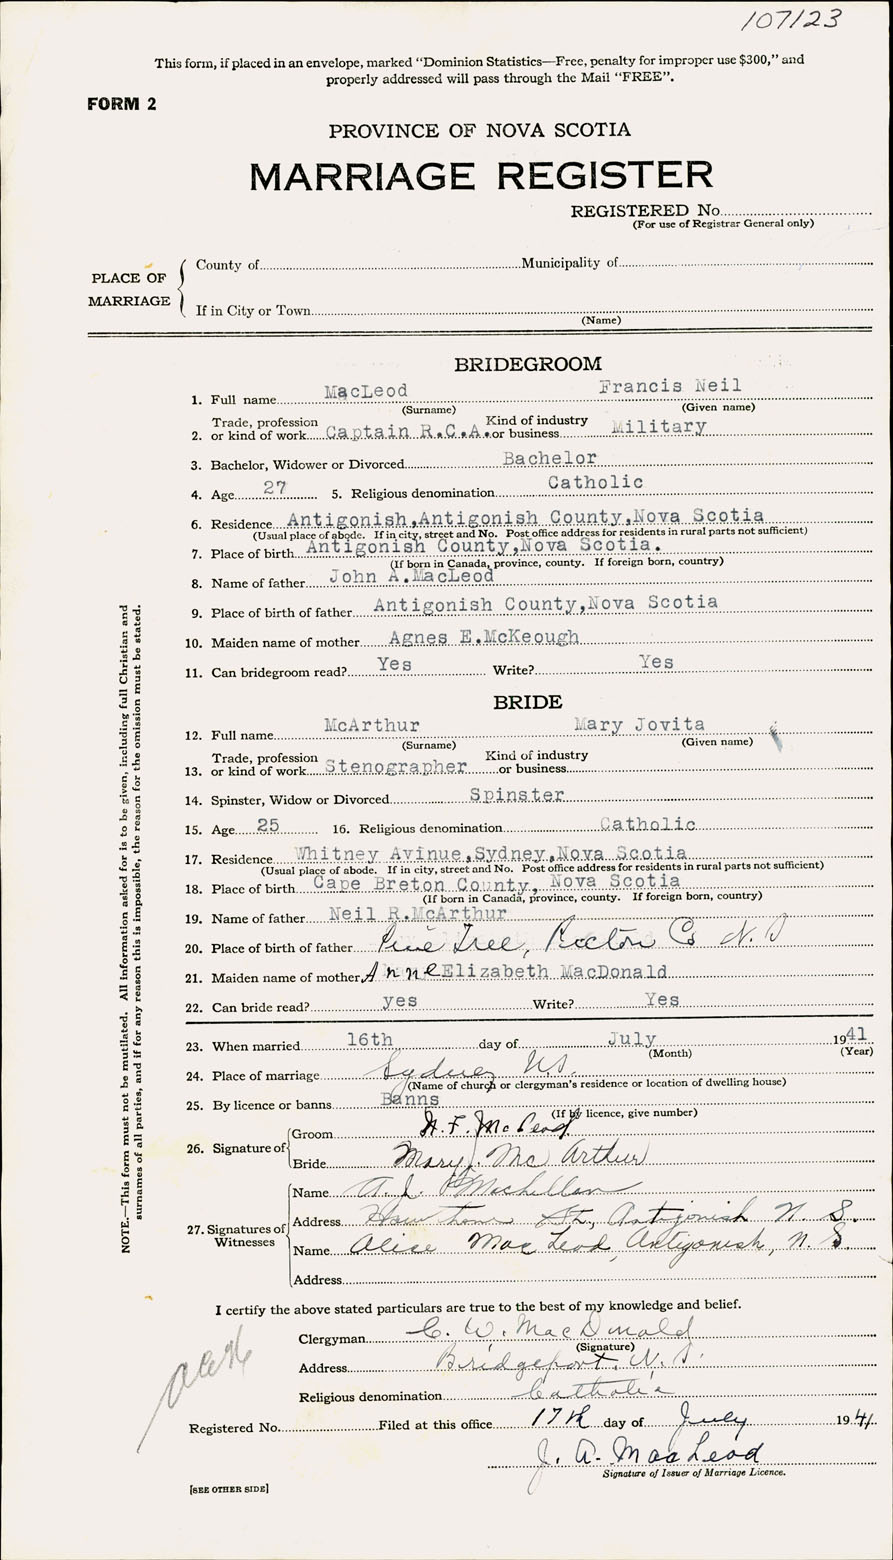 107123
This form, if placed in an envelope, marked "Dominion Statistics—Free, penalty for improper use $300," and
properly addressed will pass through the Mail "FREE".
FORM 2
PROVINCE OF NOVA SCOTIA
MARRIAGE REGISTER
REGISTERED No.
(For use of Registrar General only)
PLACE OF MARRIAGE
County of Municipality of
If in City or Town
(Name)
BRIDEGROOM
1. Full name MacLeod Francis Neil
(Surname) (Given name)
2. Trade, profession or kind of work Captain R.C.A. Kind of industry or business Military
3. Bachelor, Widower or Divorced Bachelor
4. Age 27 5. Religious denomination Catholic
6. Residence Antigonish,Antigonish County,Nova Scotia
(Usual place of abode. If in city, street and No. Post office address for residents in rural parts not sufficient)
7. Place of birth Antigonish County,Nova Scotia.
(If born in Canada, province, county. If foreign born, country)
8. Name of father John A.MacLeod
9. Place of birth of father Antigonish County,Nova Scotia
10. Maiden name of mother Agnes E.McKeough
11. Can bridegroom read? Yes Write? Yes
BRIDE
12. Full name McArthur Mary Jovita
(Surname) (Given name)
13. Trade, profession or kind of work Stenographer Kind of industry or business
14. Spinster, Widow or Divorced Spinster
15. Age 25 16. Religious denomination Catholic
17. Residence Whitney Avinue,Sydney,Nova Scotia
(Usual place of abode. If in city, street and No. Post office address for residents in rural parts not sufficient)
18. Place of birth Cape Breton County, Nova Scotia
(If born in Canada, province, county. If foreign born, country)
19. Name of father Neil R.McArthur
20. Place of birth of father Pine Tree, Pictou Co N.S
21. Maiden name of mother Anne Elizabeth MacDonald
22. Can bride read? yes Write? Yes
23. When married 16th day of July 1941
(Month) (Year)
24. Place of marriage Sydney N.S.
(Name of church or clergyman's residence or location of dwelling house)
25. By licence or banns Banns
(If by licence, give number)
26. Signature of
Groom McLeod
Bride Mary J. McArthur
27. Signatures of Witnesses
Name A. J. MacLellan
Address Hawthorne St., Antigonish N. S.
Name Alice MacLeod, Antigonish, N. S.
Address
I certify the above stated particulars are true to the best of my knowledge and belief.
Clergyman C. W. MacDonald
(Signature)
Address Bridgeport, N. S.
Religious denomination Catholic
Registered No. Filed at this office 17th day of July 1941.
J. A. MacLeod
Signature of Issuer of Marriage Licence.
[SEE OTHER SIDE]
NOTE.—This form must not be mutilated. All information asked for is to be given, including full Christian and
surnames of all parties, and if for any reason this is impossible, the reason for the omission must be stated.